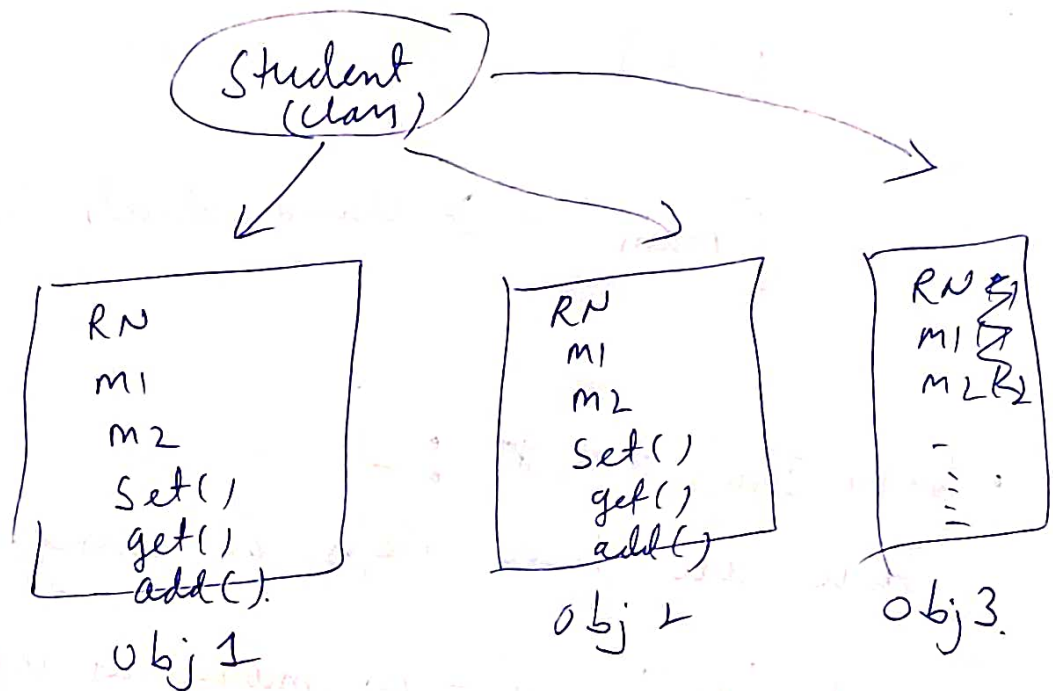 Student
(class)
RN
m1
m2
Set()
get()
add().
obj 1
RN
m1
m2
Set()
get()
add()
obj 2
RN
m1
m2
obj 3.